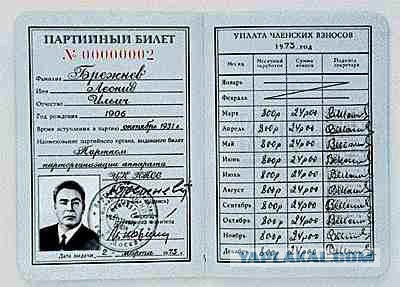 ПАРТИЙНЫЙ БИЛЕТ
№ 00000002
Фамилия Брежнев
Имя Леонид
Отчество Ильич
Год рождения 1906
Время вступления в партию октябрь 1931г.
Наименование партийного органа, выдавшего билет Партком
парторганизации аппарата
ЦК КПСС
Дата выдачи 2 марта 1973 г.
УПЛАТА ЧЛЕНСКИХ ВЗНОСОВ
1973 год
Месяц Месячный заработок Сумма взноса Подпись секретаря
Январь
Февраль
Март 800р 24р00
Апрель 800р 24р00
Май 800р 24р00
Июнь 800р 24р00
Июль 800р 24р00
Август 800р 24р00
Сентябрь 800р 24р00
Октябрь 800р 24р00
Ноябрь 800р 24р00
Декабрь 800р 24р00